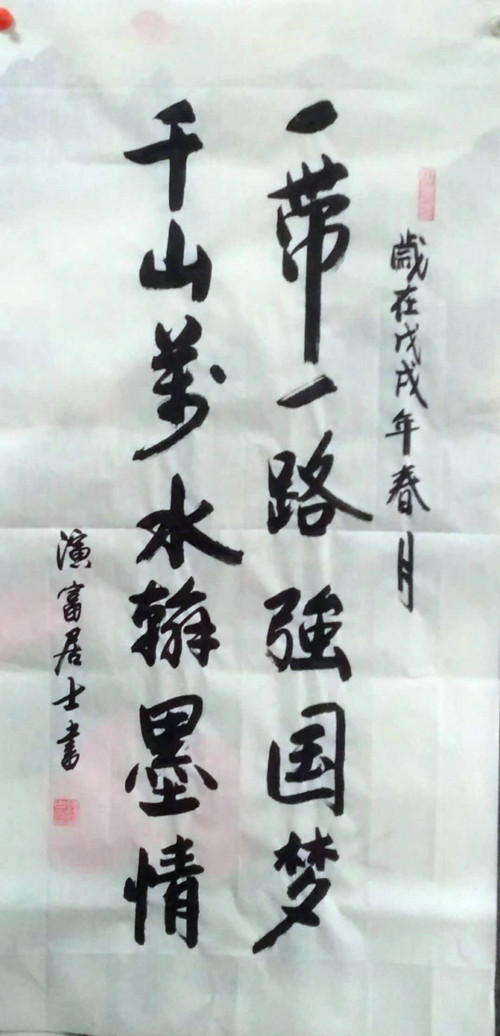 歲在戊戌年春月
一带一路強国梦
千山萬水翰墨情
演富居士書